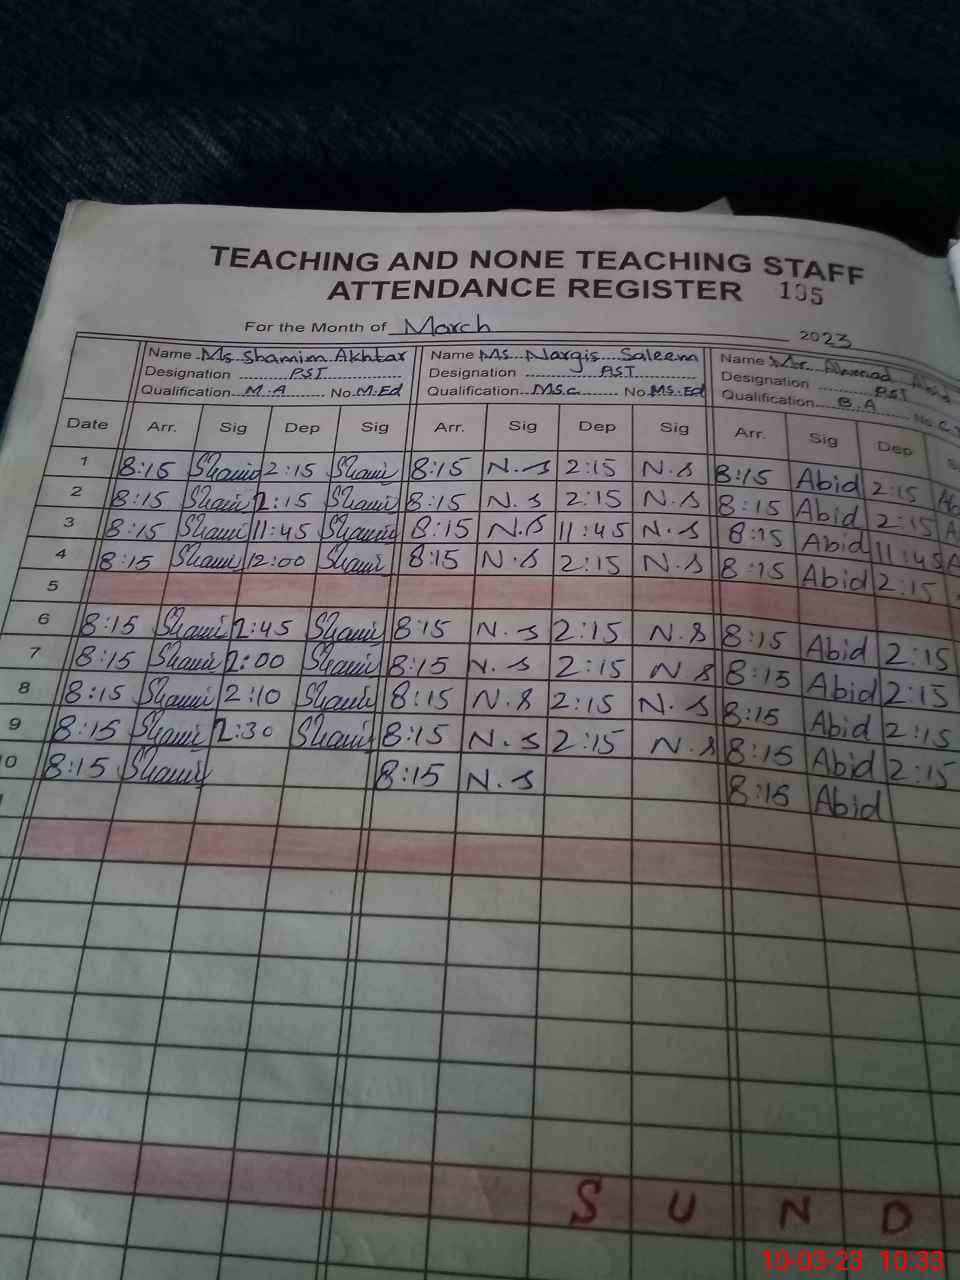 TEACHING AND NONE TEACHING STAFF
ATTENDANCE REGISTER 135
For the Month of March 2023
Name Ms Shamim Akhtar Name Ms. Nargis Saleem Name Mr. Ahmad
Designation PST Designation PST Designation PST
Qualification M.A No. M.Ed Qualification MSc No. MS.Ed Qualification B.A No. C.T
Date Arr. Sig Dep Sig Arr. Sig Dep Sig Arr. Sig Dep
1 8:15 Shami 2:15 Shami 8:15 N.S 2:15 N.S 8:15 Abid 2:15
2 8:15 Shami 2:15 Shami 8:15 N.S 2:15 N.S 8:15 Abid 2:15
3 8:15 Shami 11:45 Shami 8:15 N.S 11:45 N.S 8:15 Abid 11:45
4 8:15 Shami 12:00 Shami 8:15 N.S 2:15 N.S 8:15 Abid 2:15
5
6 8:15 Shami 2:45 Shami 8:15 N.S 2:15 N.S 8:15 Abid 2:15
7 8:15 Shami 2:00 Shami 8:15 N.S 2:15 N.S 8:15 Abid 2:15
8 8:15 Shami 2:10 Shami 8:15 N.S 2:15 N.S 8:15 Abid 2:15
9 8:15 Shami 2:30 Shami 8:15 N.S 2:15 N.S 8:15 Abid 2:15
10 8:15 Shami 8:15 N.S 8:15 Abid
S U N D
10-03-23 10:33